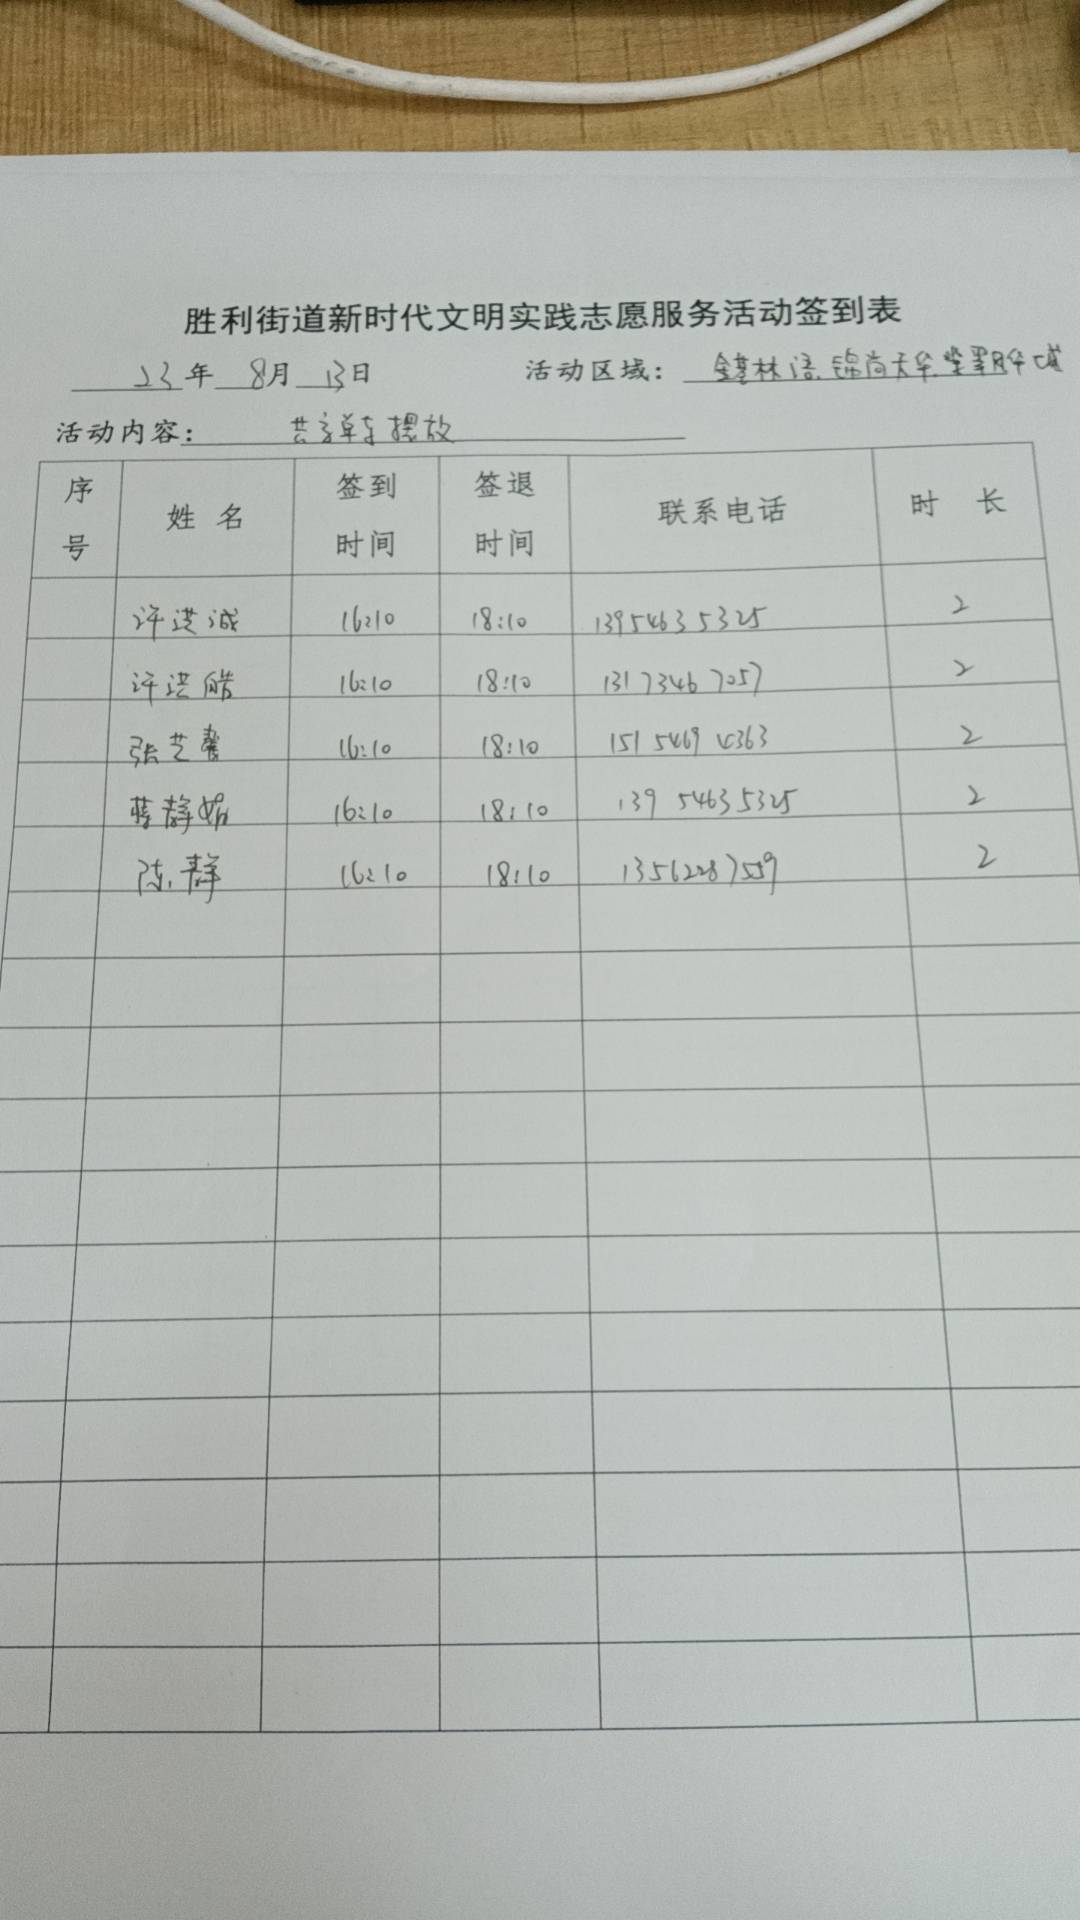 胜利街道新时代文明实践志愿服务活动签到表
23年 8月 13日 活动区域: 林语.锦尚天华.
活动内容: 共享单车摆放
序号 姓名 签到时间 签退时间 联系电话 时长
许洪诚 16:10 18:10 13954635325 2
许洪皓 16:10 18:10 13173467057 2
张艺馨 16:10 18:10 151 5469 4363 2
静 16:10 18:10 139 54635325 2
陈静 16:10 18:10 13562287559 2